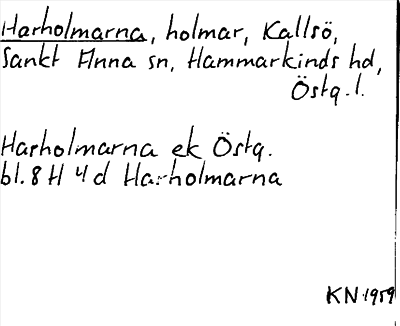 Harholmarna, holmar, Kallsö,
Sankt Anna sn, Hammarkinds hd,
Östg. l.
Harholmarna ek Östg.
bl. 8 H 4 d Harholmarna
KN 1959